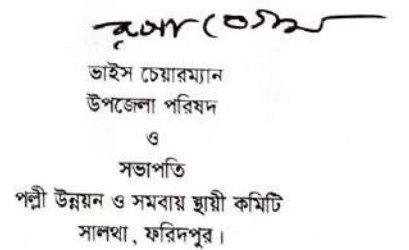 রুপা বেগম
ভাইস চেয়ারম্যান
উপজেলা পরিষদ
ও
সভাপতি
পল্লী উন্নয়ন ও সমবায় স্থায়ী কমিটি
সালথা, ফরিদপুর।